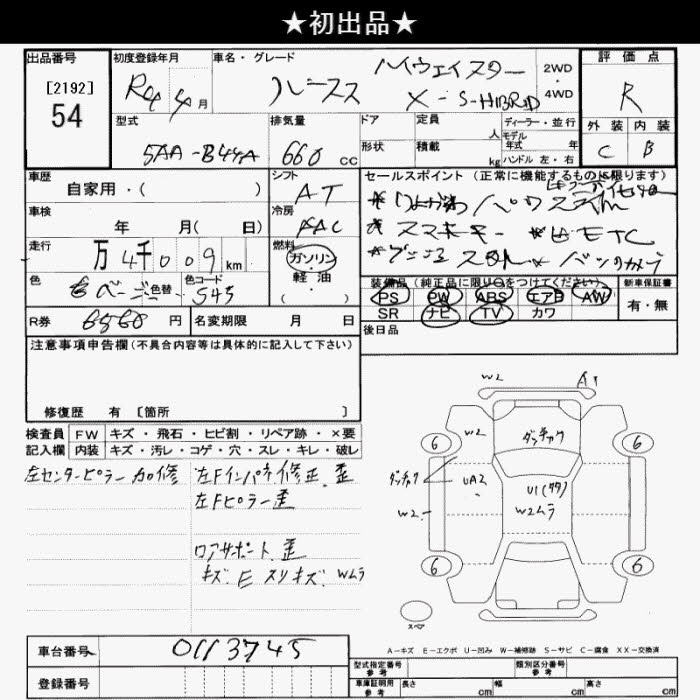 ★初出品★
出品番号
[2192]
54
初度登録年月
R4 4月
車名・グレード
ルークス
ハイウェイスター
X-S-HIBRID
2WD
・
4WD
評価点
R
外装 内装
C B
型式
5AA-B44A
排気量
660 cc
ドア
形状
定員
人
積載
kg
ディーラー・並行
モデル
年式 年
ハンドル 左・右
車歴
自家用・( )
シフト
AT
車検
年 月( 日)
冷房
AAC
走行
万4千009km
燃料
ガソリン
・
軽油
( )
色
ベージュ
色替
色コード
S45
R券
6560 円
名変期限 月 日
セールスポイント (正常に機能するものに限ります)
スマキー ETC
バックカメラ
装備品 (純正品に限り○をつけてください)
PS PW ABS エアB AW
SR ナビ TV カワ
新車保証書
有・無
後日品
注意事項申告欄(不具合内容等は具体的に記入して下さい)
修復歴 有 [箇所 ]
検査員 FW キズ・飛石・ヒビ割・リペア跡・×要
記入欄 内装 キズ・汚レ・コゲ・穴・スレ・キレ・破レ
左センターピラー加修
左Fインパネ修正、歪
左Fピラー歪
ロアサポート歪
キズ、E スリキズ、Wムラ
W2 A1
6 W2 ダッチャク 6
ダッチャク UA2 U1(タタ)
W2 W2ムラ
6 6
スペア
A-キズ E-エクボ U-凹み W-補修跡 S-サビ C-腐食 XX-交換済
車台番号 0113745
登録番号
型式指定番号
参考
類別区分番号
参考
車庫証明用
参考
長さ cm 幅 cm 高さ cm